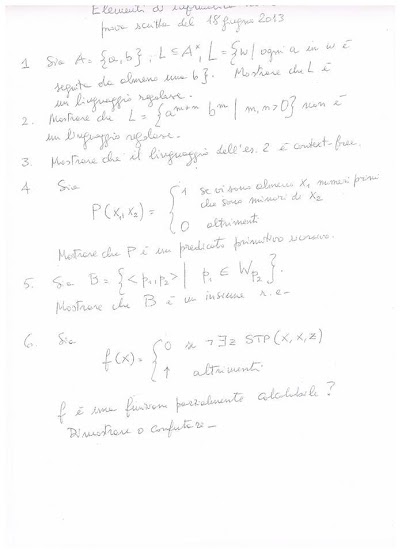 Elementi di informatica
prova scritta del 18 giugno 2013
1 Sia A = {a, b}, L ⊆ A*, L = {w | ogni a in w è
seguita da almeno una b}. Mostrare che L è
un linguaggio regolare.
2. Mostrare che L = {a^{m+n} b^m | m, n > 0} non è
un linguaggio regolare.
3. Mostrare che il linguaggio dell'es. 2 è context-free.
4 Sia
P(x₁, x₂) = { 1 se vi sono almeno x₁ numeri primi
che sono minori di x₂
0 altrimenti
Mostrare che P è un predicato primitivo ricorsivo.
5. Sia B = {<p₁, p₂> | p₁ ∈ W_{p₂}}.
Mostrare che B è un insieme r.e.
6. Sia
f(x) = { 0 se ¬∃z STP(x, x, z)
↑ altrimenti
f è una funzione parzialmente calcolabile?
Dimostrare o confutare.